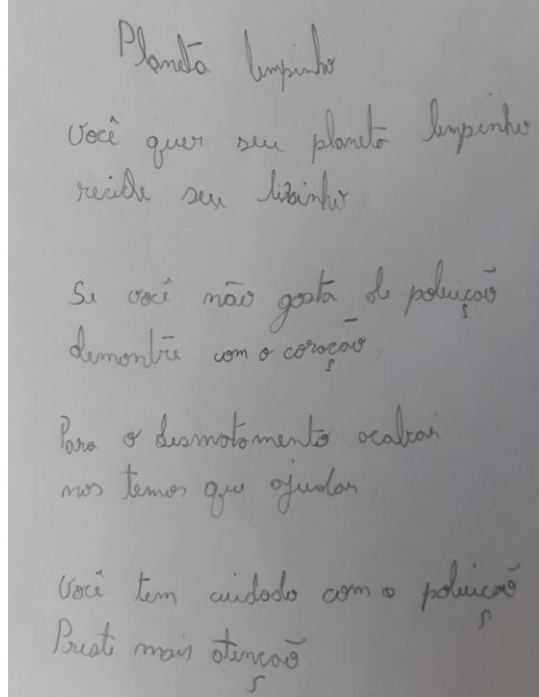 Planeta limpinho
Você quer seu planeta limpinho
recicle seu lixinho
Se você não gosta de poluição
demontre com o coração
Para o desmatamento acabar
nos temos que ajudar
Você tem cuidado com a poluição
Preste mais atenção